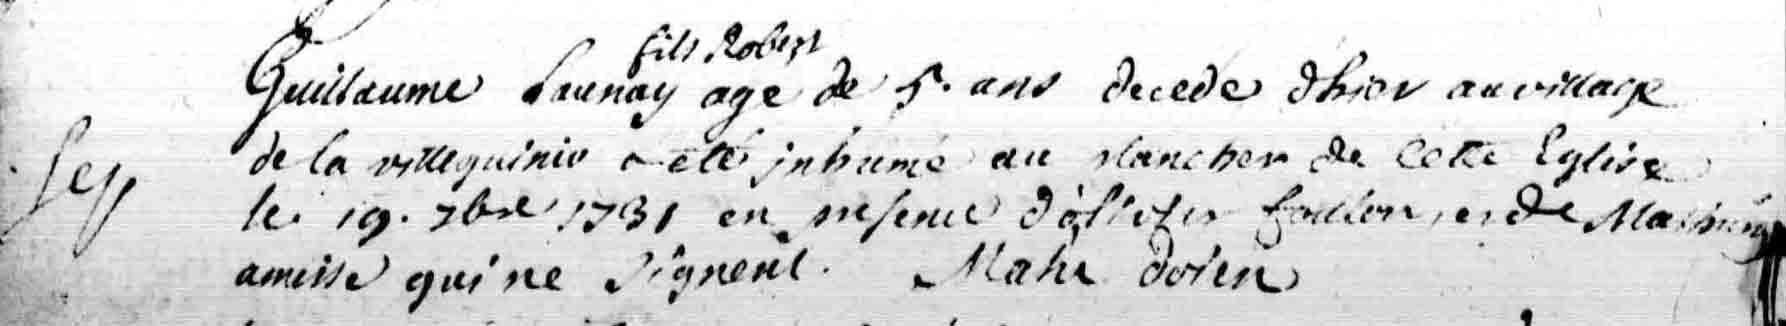 fils Robert
Guillaume Launay age de 5. ans decede d'hier au village
de la villeguinio a été inhumé au plancher de cette Eglise
Sep
le 19. 7bre 1731 en presence d'olivier foullon, et de Mathurin
amisse qui ne signent. Mahé doien